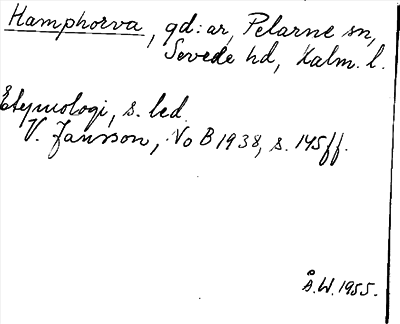 Hamphorva, gd:ar, Pelarne sn,
Sevede hd, Kalm. l.
Etymologi, s. led.
V. Jansson, NoB 1938, s. 145ff.
Å.W. 1955.